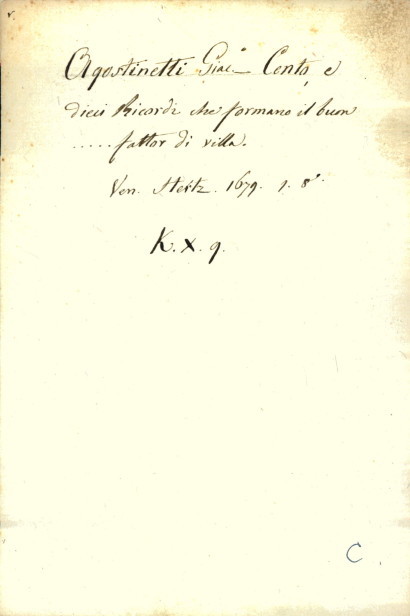 Agostinetti Giac Cento, e
dieci Ricordi che formano il buon
..... fattor di villa.
Ven. Hertz. 1679. 1. 8°.
K. X. 9.
C